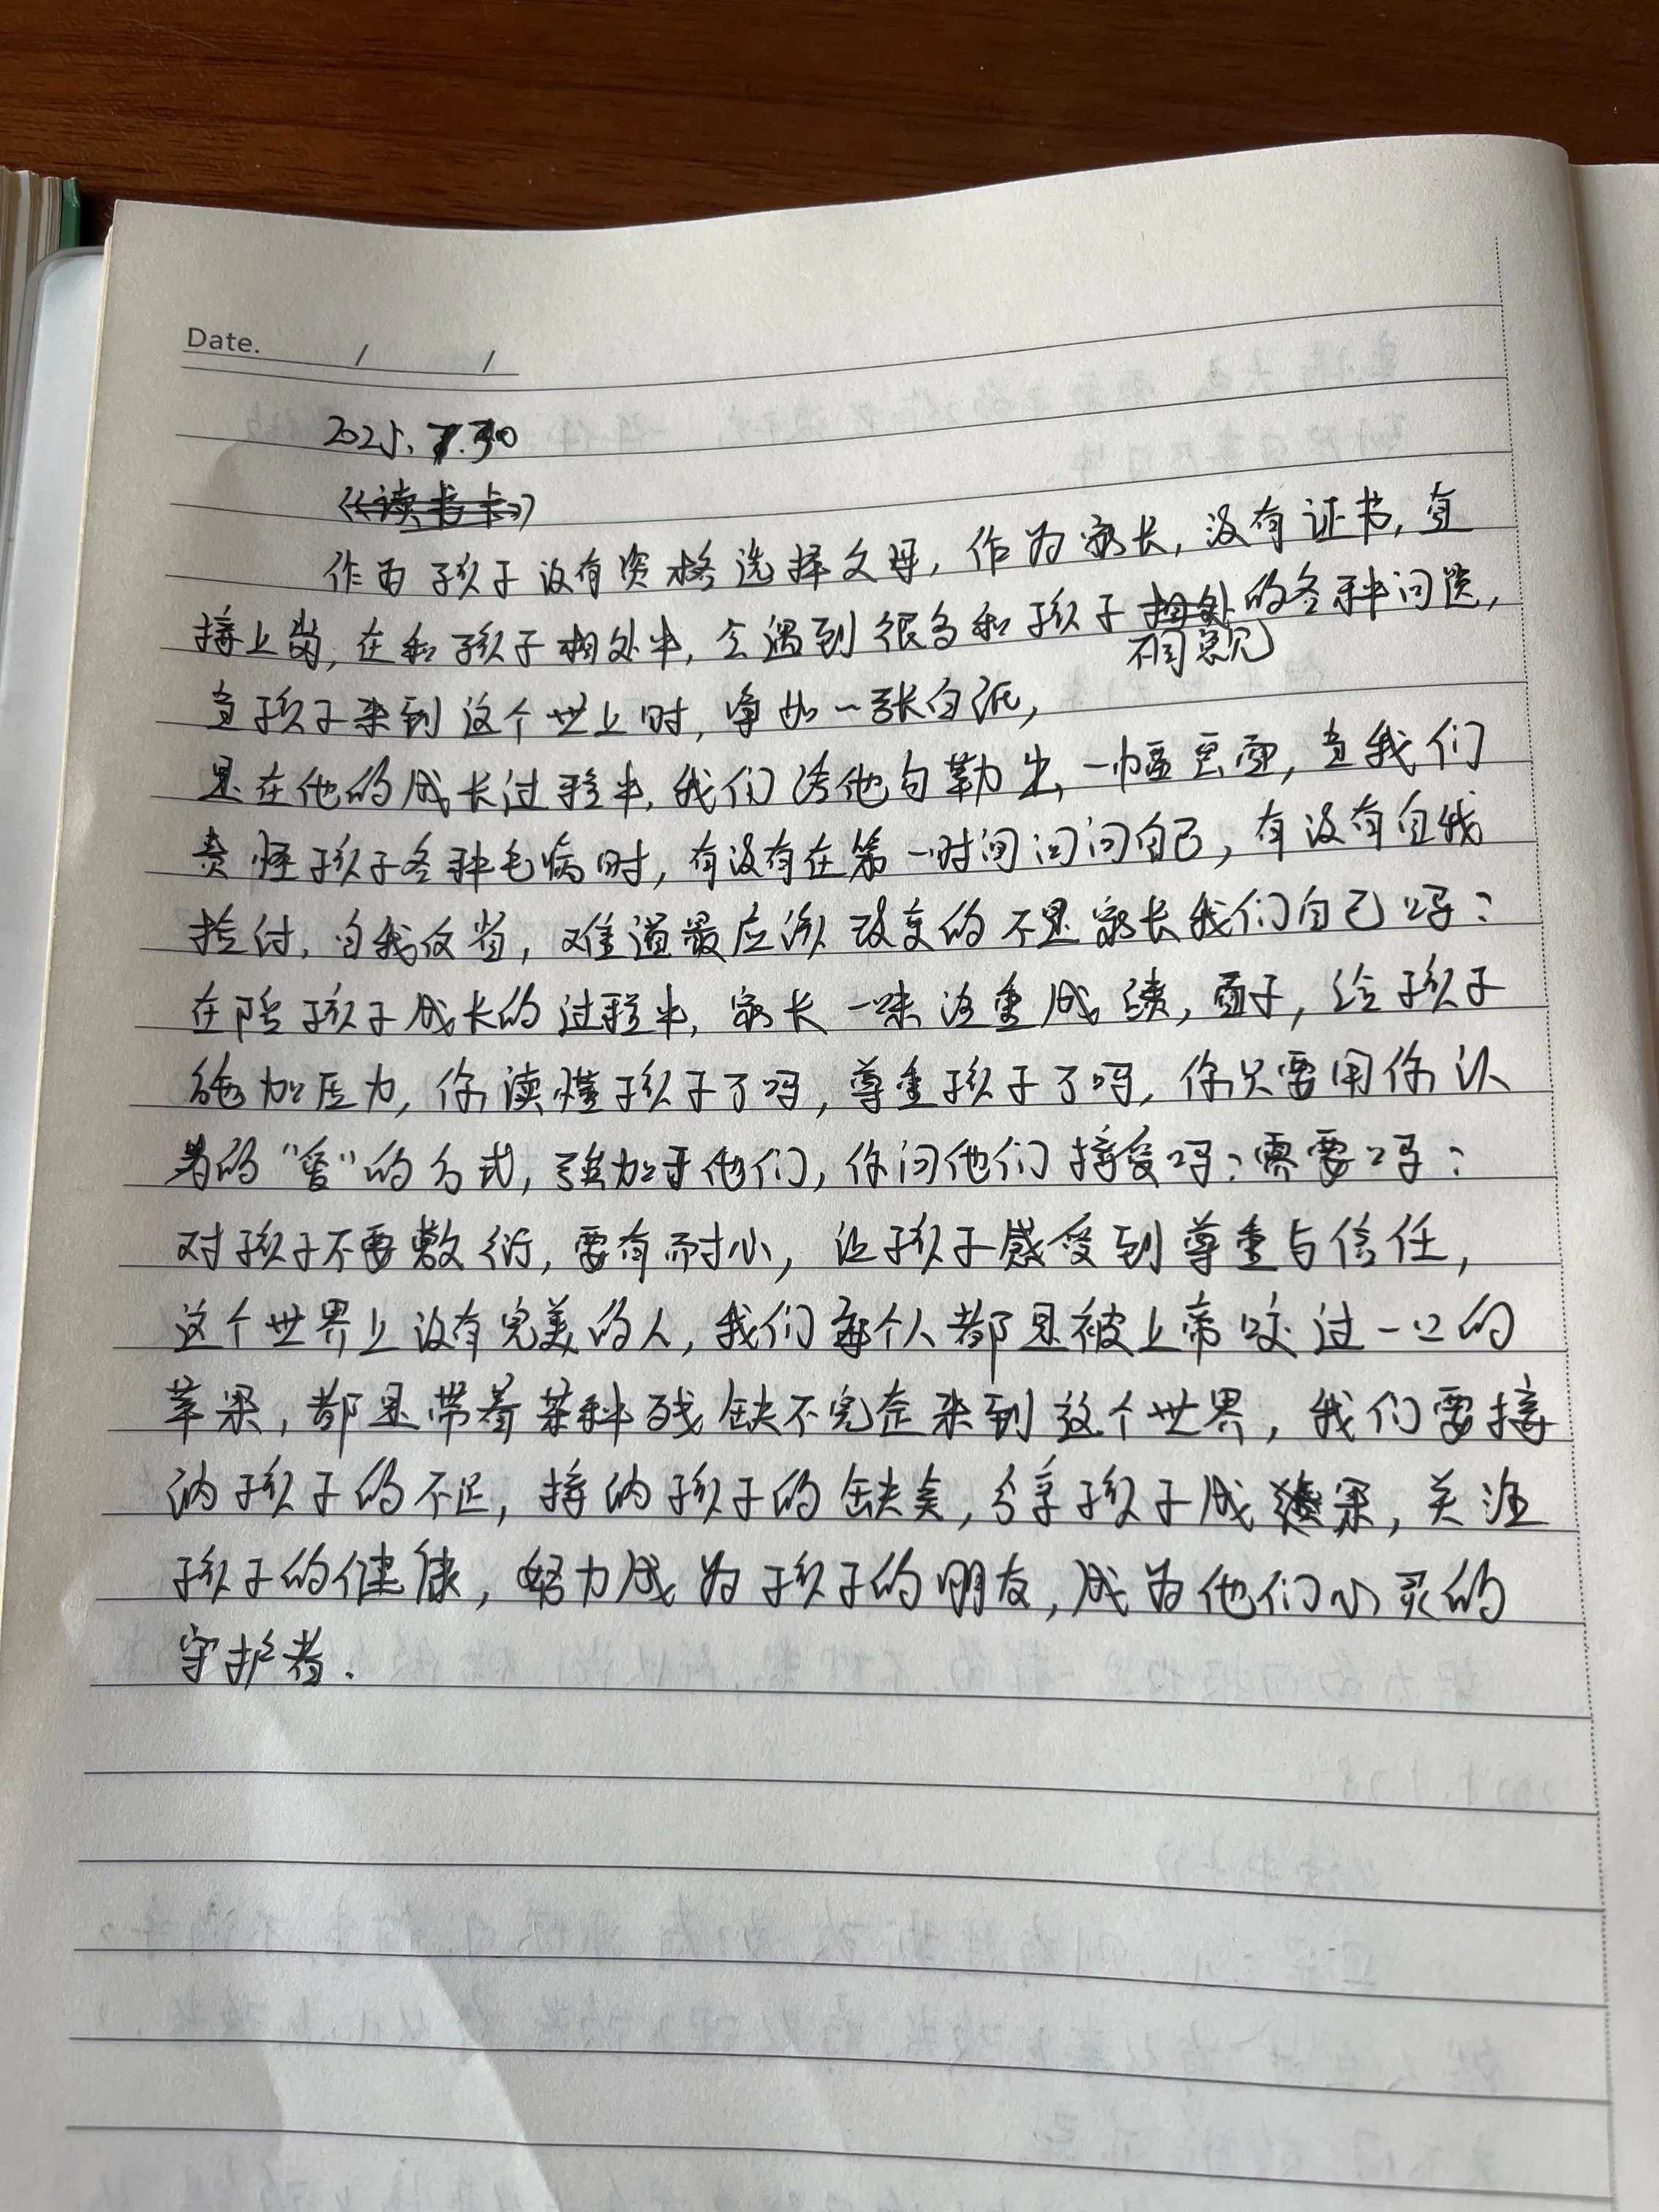 Date. / /
2025.7.30
《读书卡》
作为孩子没有资格选择父母,作为家长,没有证书,直
接上岗,在和孩子相处中,会遇到很多和孩子相处的各种问题,
不同意见
当孩子来到这个世上时,犹如一张白纸,
是在他的成长过程中,我们给他勾勒出,一幅画面,当我们
责怪孩子各种毛病时,有没有在第一时间问问自己,有没有自我
检讨,自我反省,难道最应该改变的不是家长我们自己吗?
在陪孩子成长的过程中,家长一味注重成绩,面子,给孩子
施加压力,你读懂孩子了吗,尊重孩子了吗,你只要用你认
为的“爱”的方式,强加于他们,你问他们接受吗?需要吗?
对孩子不要敷衍,要有耐心,让孩子感受到尊重与信任,
这个世界上没有完美的人,我们每个人都是被上帝咬过一口的
苹果,都是带着某种残缺不完走来到这个世界,我们要接
纳孩子的不足,接纳孩子的缺点,分享孩子成果,关注
孩子的健康,努力成为孩子的朋友,成为他们心灵的
守护者.